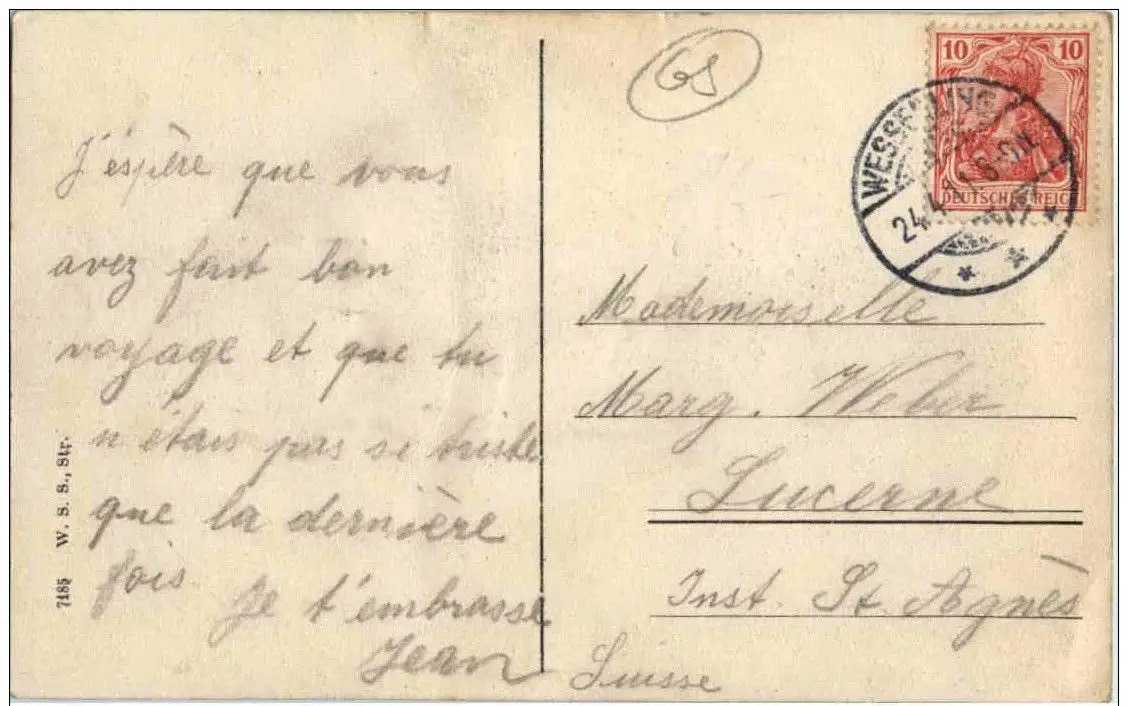 J'espère que vous
avez fait bon
voyage et que tu
n'étais pas si triste
que la dernière
fois
Je t'embrasse
Jean
7185 W. S. S., Str.
GS
10 10
DEUTSCHES REICH
WESSERLING
24.4.11 6-9N.
Mademoiselle
Marg. Weber
Lucerne
Inst. St. Agnès
Suisse